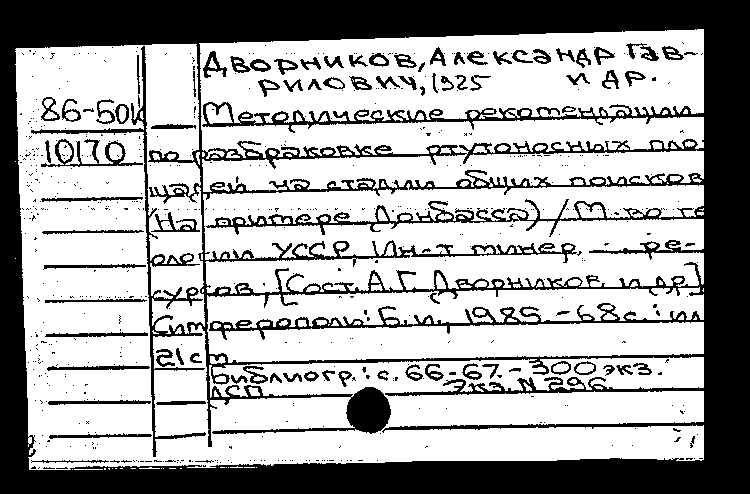 Дворников, Александр Гав-
рилович, 1925 и др.
86-50к Методические рекомендации
10170 по разбраковке ртутоносных пло-
щадей на стадии общих поисков
(На примере Донбасса) / М-во ге
ологии УССР, Ин-т минер. ре-
сурсов; [Сост. А.Г. Дворников и др.]
Симферополь: Б.и., 1985 - 68с.: ил
21 см.
Библиогр.: с. 66-67. - 300 экз.
ДСП. Экз. N 296.